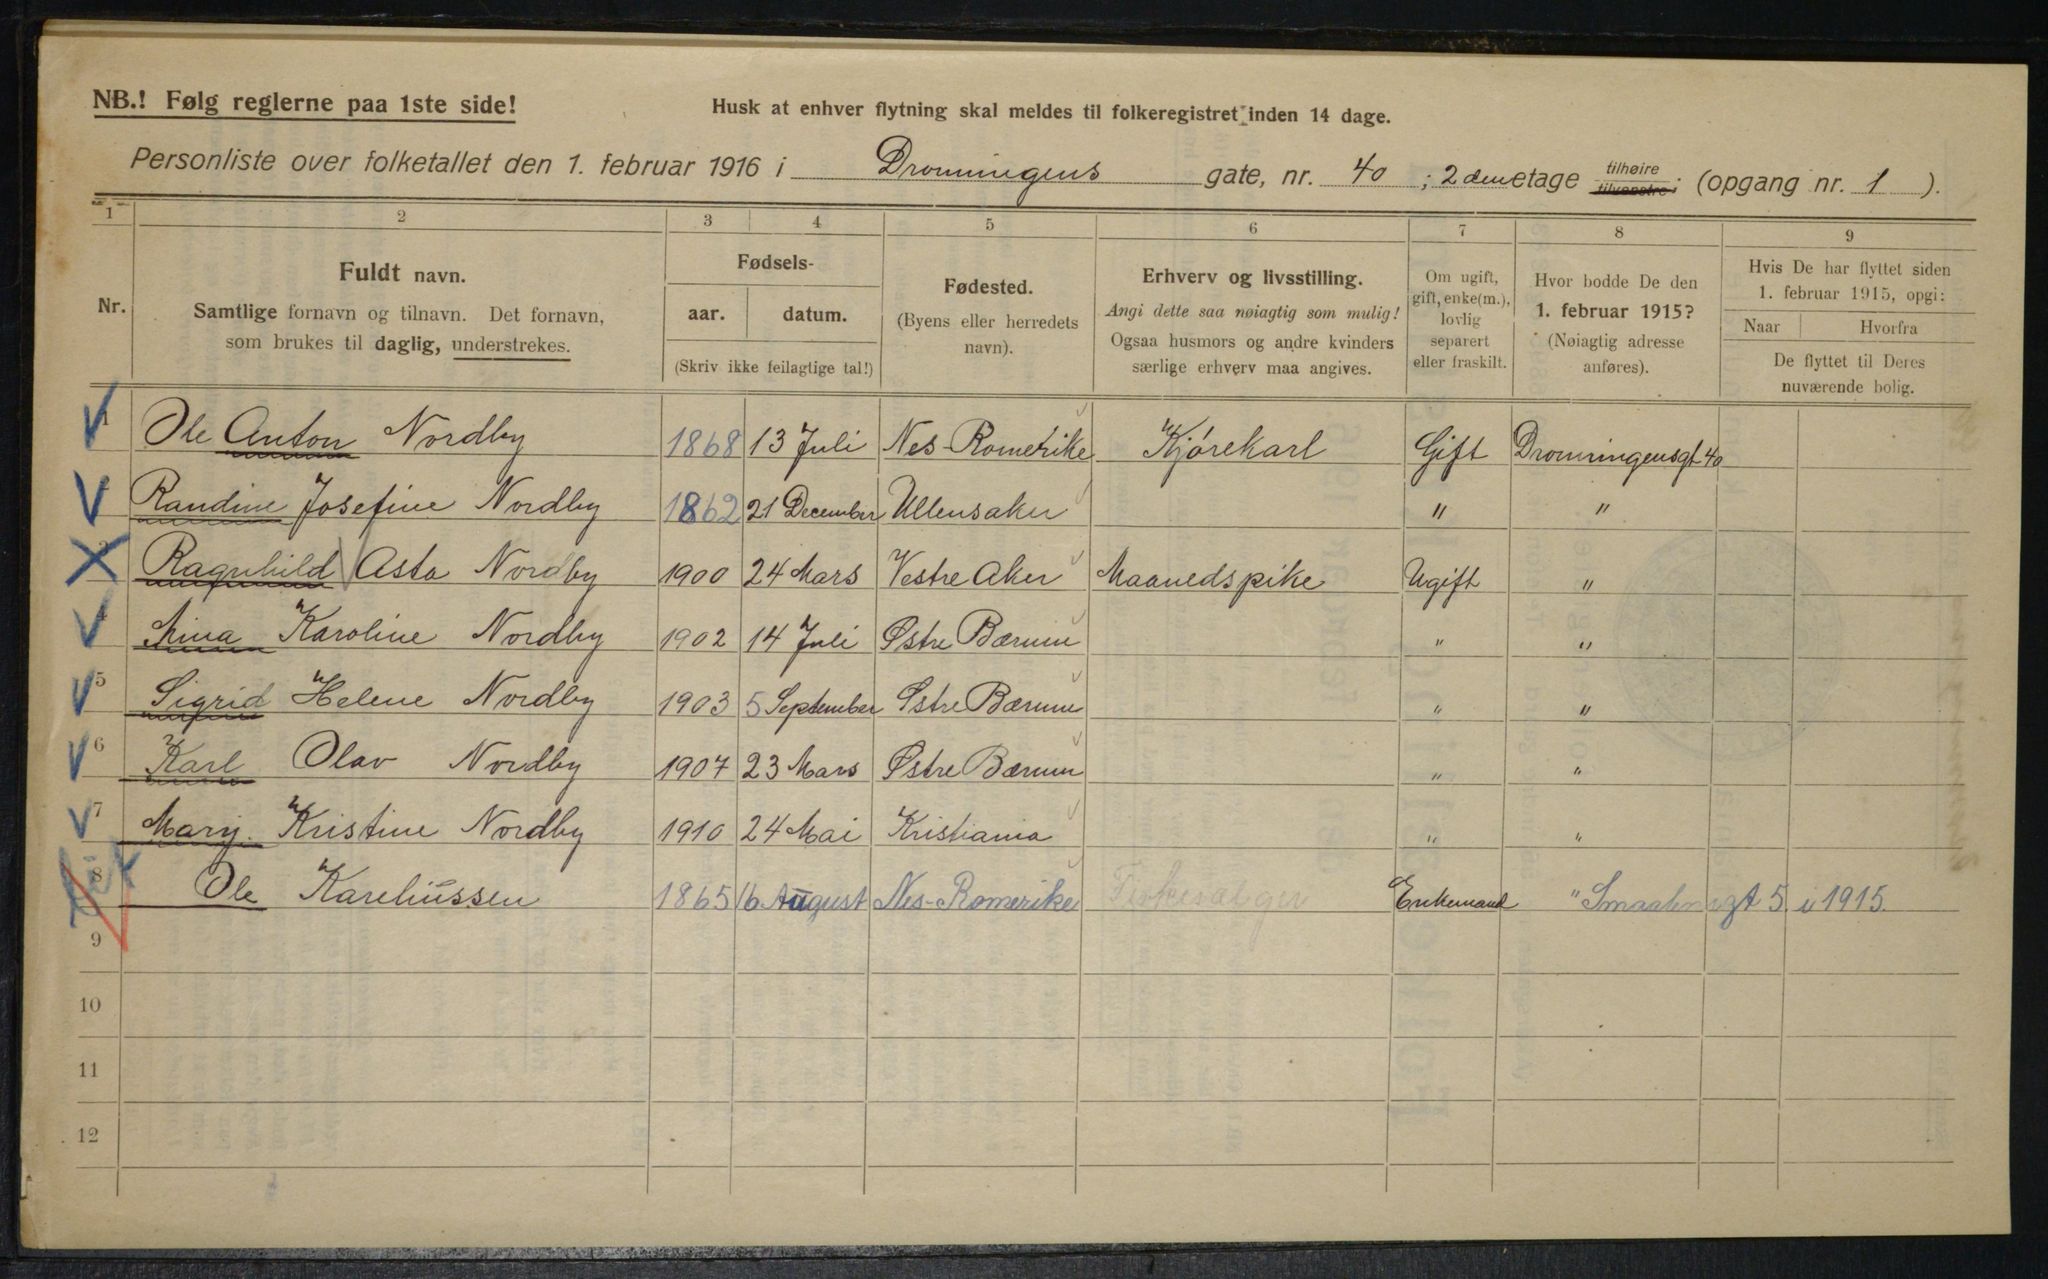 NB.! Følg reglerne paa 1ste side!
Husk at enhver flytning skal meldes til folkeregistret inden 14 dage.
Personliste over folketallet den 1. februar 1916 i Dronningens gate, nr. 40 ; 2den etage tilhøire tilvenstre ; (opgang nr. 1 ).
1 2 3 4 5 6 7 8 9
Nr.
Fuldt navn.
Samtlige fornavn og tilnavn. Det fornavn,
som brukes til daglig, understrekes.
Fødsels-
aar. datum.
(Skriv ikke feilagtige tal!)
Fødested.
(Byens eller herredets
navn).
Erhverv og livsstilling.
Angi dette saa nøiagtig som mulig!
Ogsaa husmors og andre kvinders
særlige erhverv maa angives.
Om ugift,
gift, enke(m.),
lovlig
separert
eller fraskilt.
Hvor bodde De den
1. februar 1915?
(Nøiagtig adresse
anføres).
Hvis De har flyttet siden
1. februar 1915, opgi:
Naar Hvorfra
De flyttet til Deres
nuværende bolig.
1 Ole Anton Nordby 1868 13 Juli Nes-Romerike Kjørekarl Gift Dronningensgt 40
Randine Josefine Nordby 1862 21 December Ullensaker " "
Ragnhild Asta Nordby 1900 24 Mars Vestre Aker Maanedspike Ugift "
Mina Karoline Nordby 1902 14 Juli Østre Bærum " "
5 Sigrid Helene Nordby 1903 5 September Østre Bærum " "
6 Karl Olav Nordby 1907 23 Mars Østre Bærum " "
7 Mary Kristine Nordby 1910 24 Mai Kristiania " "
8 Ole Kareliussen 1865 16 August Nes-Romerike Enkemand " Smaalensgt 5. i 1915.
9
10
11
12